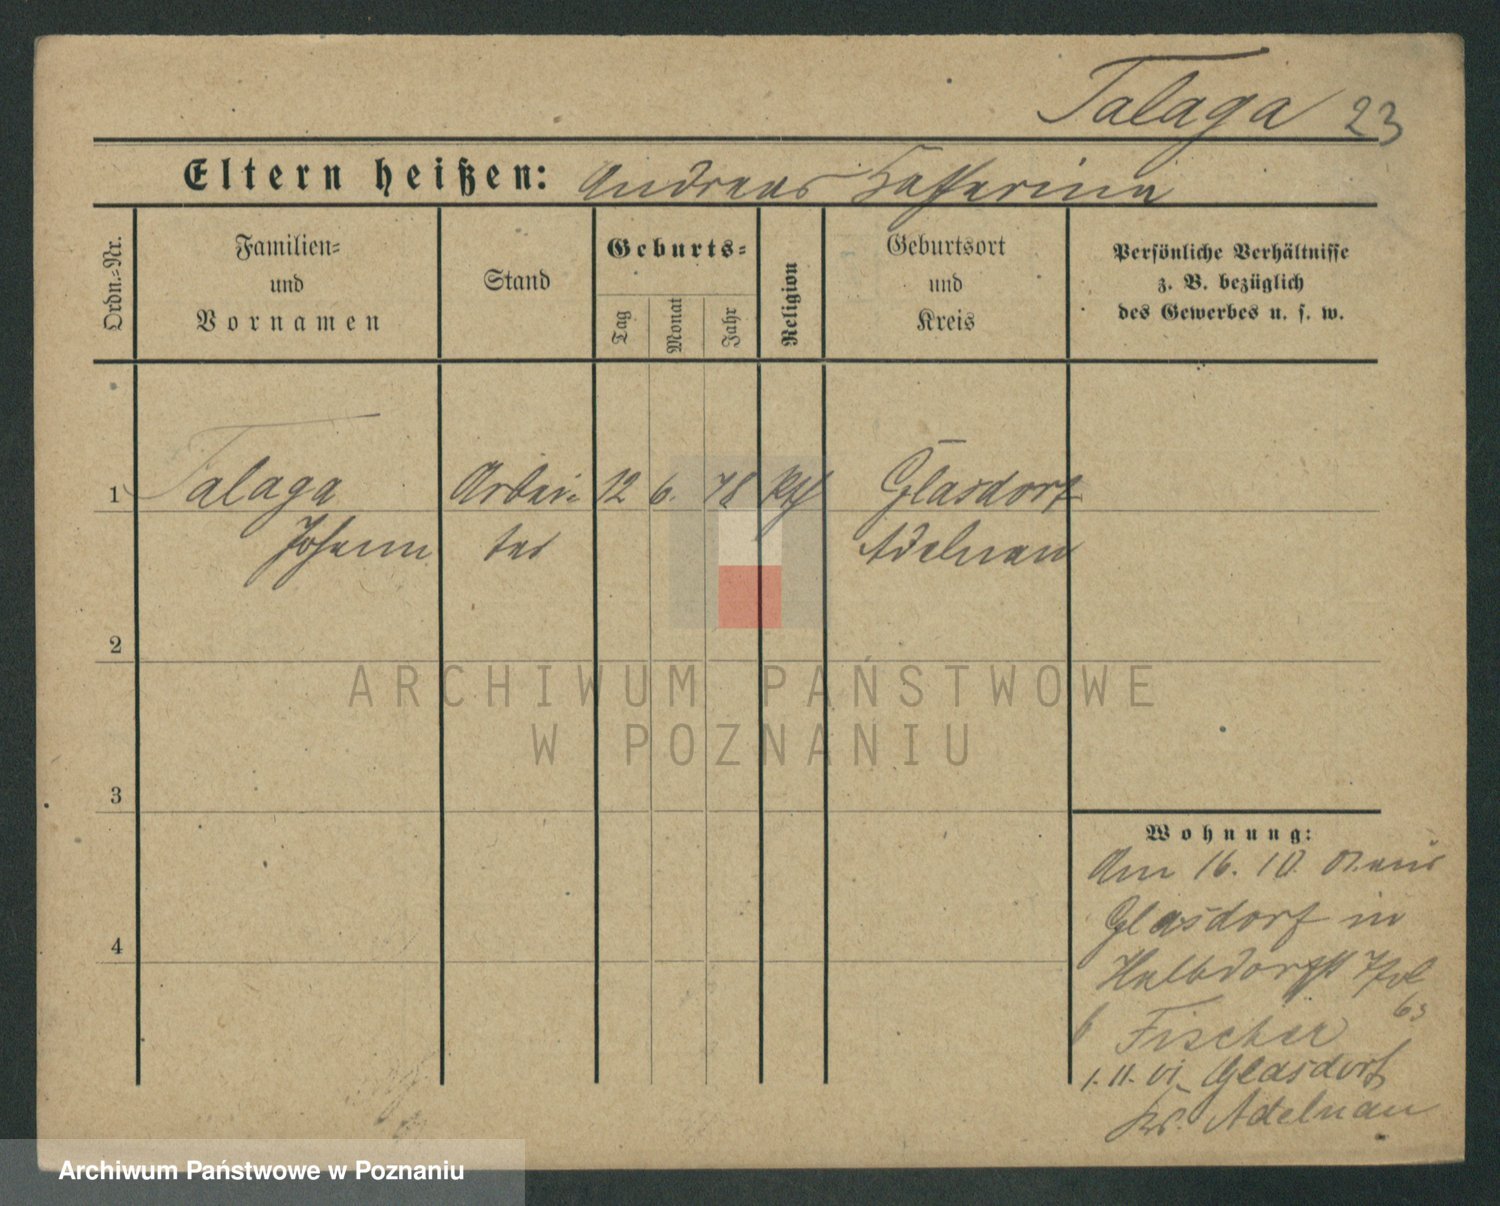 Talaga 23
Eltern heißen: Andreas Katharina
Ordn.=Nr.
Familien=
und
Vornamen
Stand
Geburts=
Tag
Monat
Jahr
Religion
Geburtsort
und
Kreis
Persönliche Verhältnisse
z. B. bezüglich
des Gewerbes u. s. w.
1 Talaga Arbei= 12 6. 78 kth Glasdorf
Johann ter Adelnau
2
3
4
Wohnung:
Am 16. 10. 01. aus
Glasdorf in
Halbdorfstr
b Fischer
1. 11. 01 Glasdorf
Kr. Adelnau
ARCHIWUM PAŃSTWOWE
W POZNANIU
Archiwum Państwowe w Poznaniu